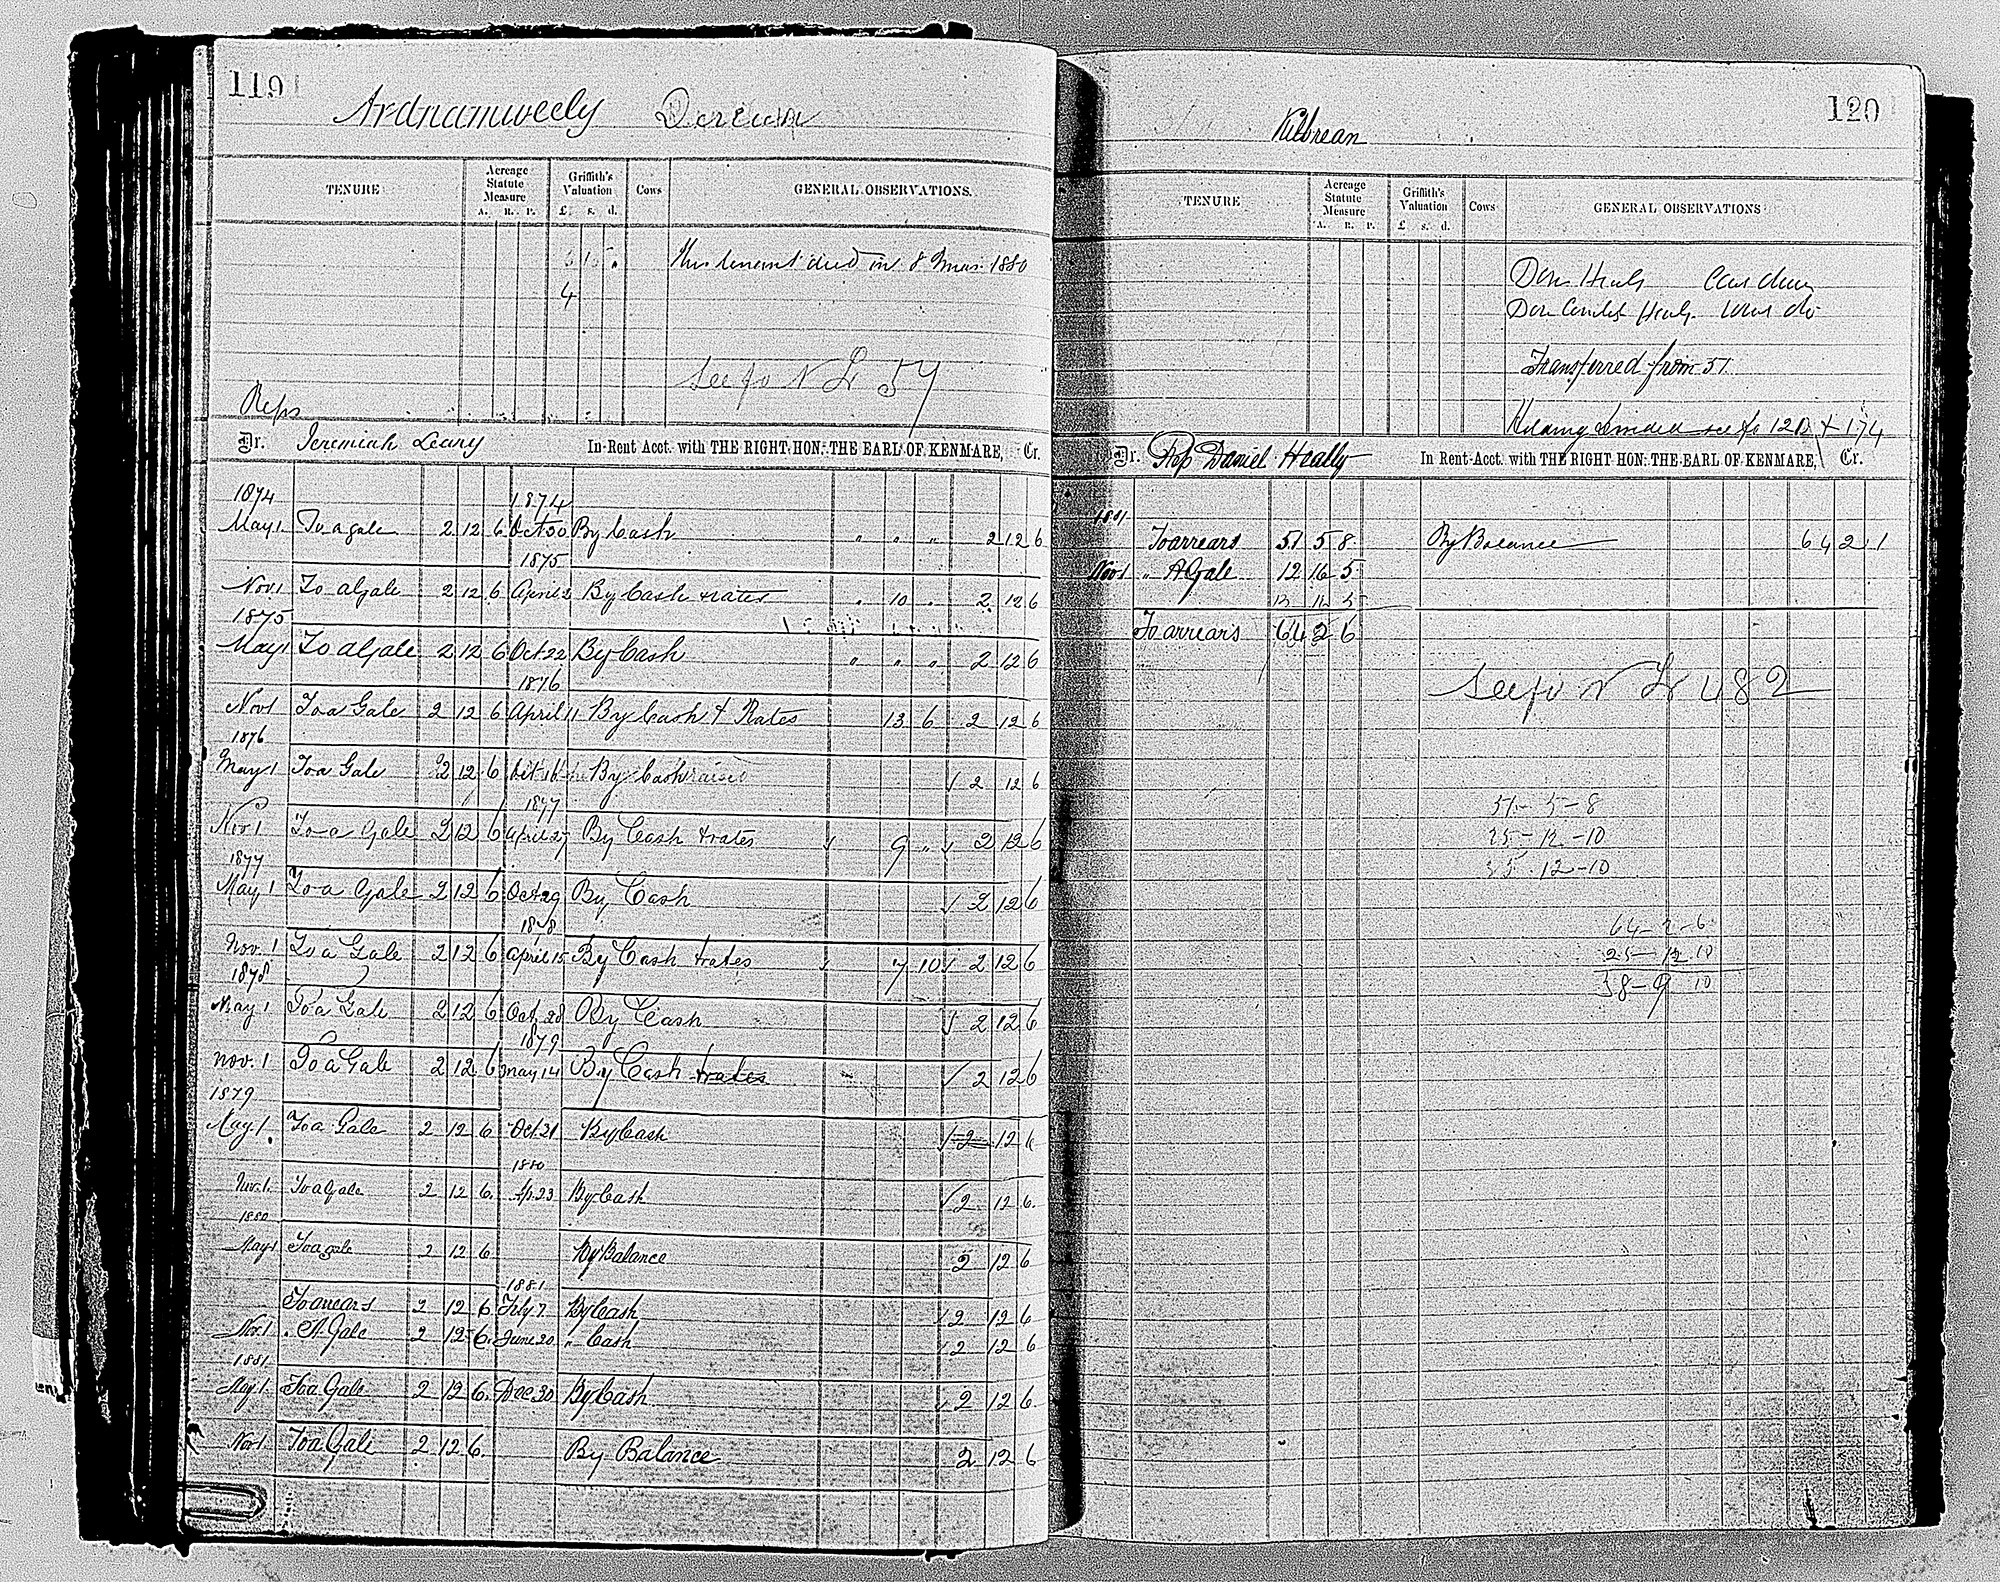 119
Ardnamweely
TENURE
Acreage Statute Measure
A. R. P.
Griffith's Valuation
£. s. d.
Cows
GENERAL OBSERVATIONS.
This tenant died in 8 1880
4
See fo N Lr 57
Reps
Dr. Jeremiah Leary In Rent Acct. with THE RIGHT HON: THE EARL OF KENMARE, Cr.
1874 1874
May 1. To a gale 2 12 6 Oct 30 By Cash " " " 2 12 6
1875
Nov 1 To a Gale 2 12 6 April 2 By Cash & rates " 10 " 2 12 6
1875
May 1 To a Gale 2 12 6 Oct 22 By Cash " " " 2 12 6
1876
Nov 1 To a Gale 2 12 6 April 11 By Cash & Rates 13 6 2 12 6
1876
May 1 To a Gale 2 12 6 Oct 16 By Cash 2 12 6
1877
Nov 1 To a Gale 2 12 6 April 27 By Cash & rates 9 " 2 12 6
1877
May 1 To a Gale 2 12 6 Oct 29 By Cash 2 12 6
1878
Nov. 1 To a Gale 2 12 6 April 15 By Cash & rates 7 10 2 12 6
1878
May 1 To a Gale 2 12 6 Oct. 28 By Cash 2 12 6
1879
Nov. 1 To a Gale 2 12 6 May 14 By Cash & rates 2 12 6
1879
May 1. To a Gale 2 12 6 Oct. 21 By Cash 2 12 6
1880
Nov. 1. To a Gale 2 12 6. Ap. 23 By Cash 2 12 6
1880
May 1 To a gale 2 12 6 By Balance 2 12 6
1881
To arrears 2 12 6 By Cash 2 12 6
Nov. 1 " A Gale 2 12 6. June 20 " Cash 2 12 6
1881
May 1. To a Gale 2 12 6. Dec. 30 By Cash 2 12 6
Nov 1. To a Gale 2 12 6. By Balance 2 12 6
120
Kilbrean
TENURE
Acreage Statute Measure
A. R. P.
Griffith's Valuation
£. s. d.
Cows
GENERAL OBSERVATIONS
Transferred from 51.
Holding divided see fo 120 & 174
Dr. Rep Daniel Heally In Rent Acct. with THE RIGHT HON: THE EARL OF KENMARE, Cr.
1881
To arrears 51 5 8 By Balance 64 2 1
Nov 1 " A Gale 12 16 5
To arrears 64 2 6
See fo N Lr 482
51 - 5 - 8
25 - 12 - 10
25 . 12 - 10
64 - 2 - 6
25 - 12 10
38 - 9 10